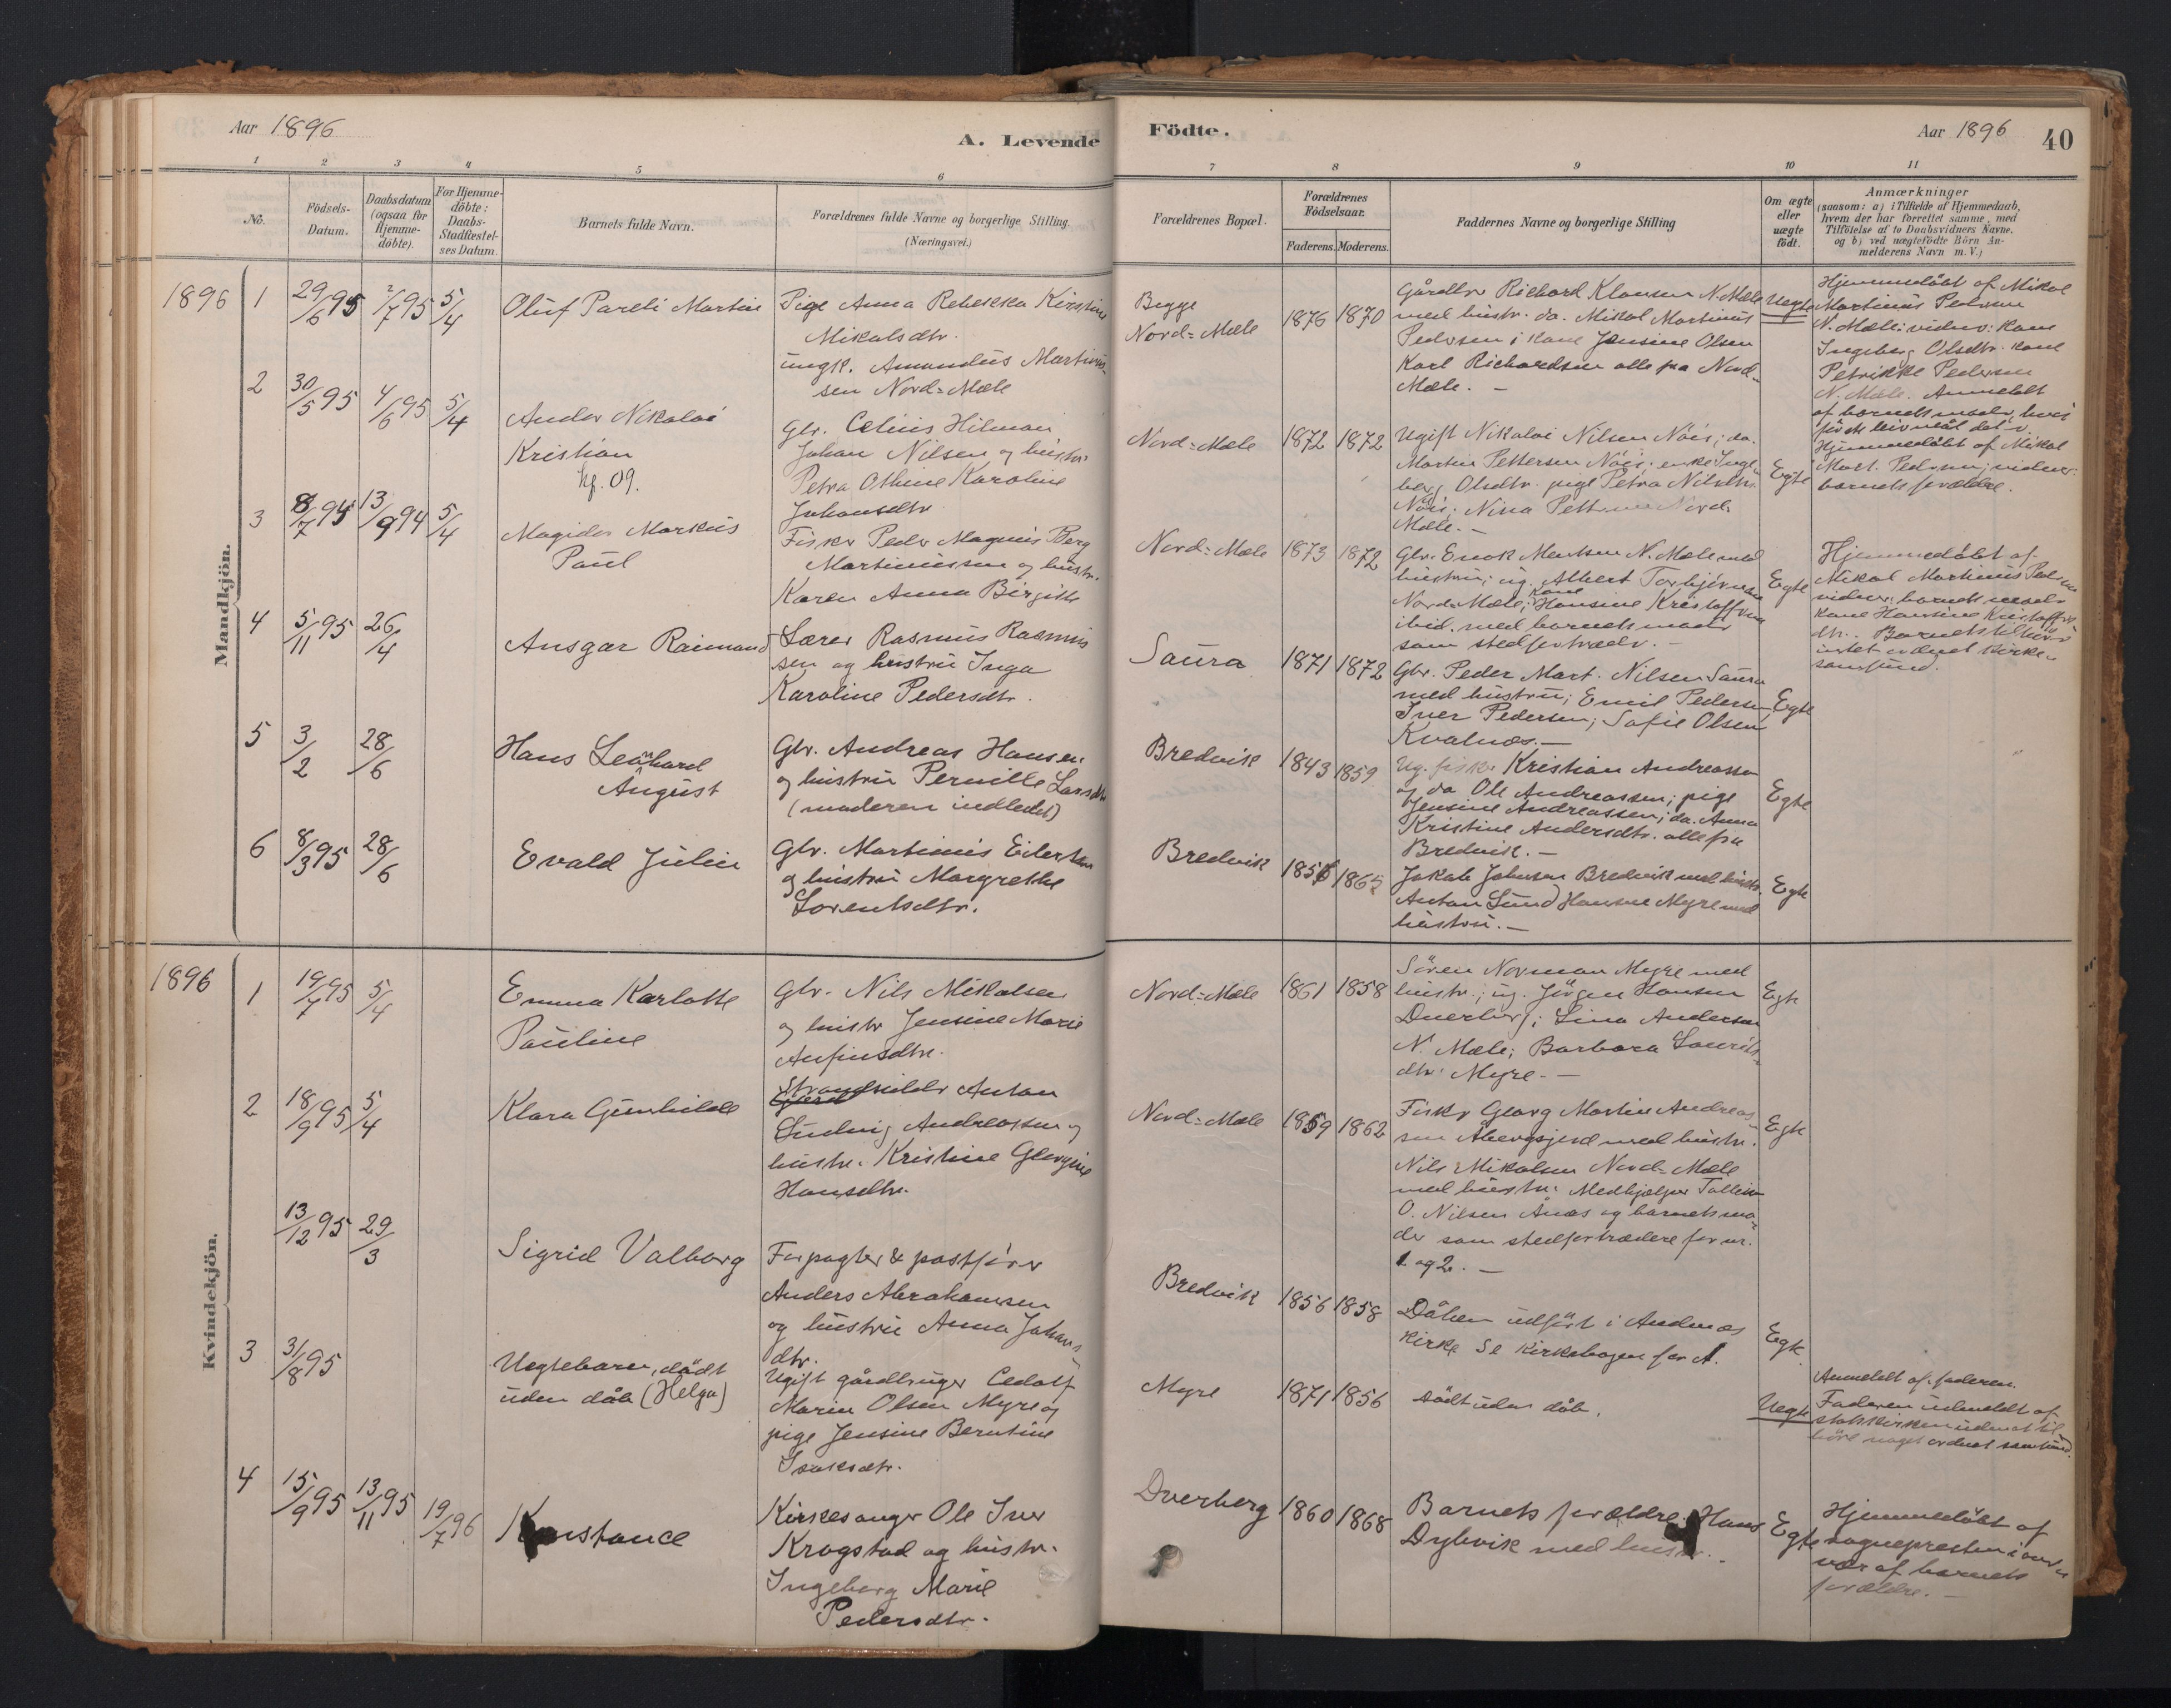 Aar 1896
A. Levende
1 2 3 4 5 6
No.
Födsels-
Datum.
Daabsdatum
(ogsaa for
Hjemme-
döbte).
For Hjemme-
döbte:
Daabs-
Stadfæstel-
ses Datum.
Barnets fulde Navn.
Forældrenes fulde Navne og borgerlige Stilling.
(Næringsvei.)
Mandkjön.
1896 1 29/6 95 2/7 95 5/4
Oluf Pareli Martin
Pige Anna Rebekka Kirstine
Mikalsdtr.
ungk. Amandus Martinus-
sen Nord-Mæle
2 30/5 95 4/6 95 5/4
Ander Nikolai
Kristian
kf. 09.
Gbr. Celius Hilman
Johan Nilsen og hustr.
Petra Othine Karoline
Johansdtr
3 8/7 94 13/9 94 5/4
Magidor Markus
Paul
Fisker Peder Magnus Berg
Martinussen og hustr.
Karen Anna Birgitte
4 5/11 95 26/4
Ansgar Raimand
Lærer Rasmus Rasmus
sen og hustru Inga
Karoline Pedersdtr.
5 3/2 28/6
Hans Leonhard
August
Gbr. Andreas Hansen
og hustru Pernille Larsdtr
(moderen indledet)
6 8/3 95 28/6
Evald Julin
Gbr. Martinus Eilertsen
og hustru Margrethe
Lorentsdtr.
Kvindekjön.
1896 1 19/7 95 5/4
Emma Karlotte
Pauline
Gbr. Nils Mikalsen
og hustr Jensine Marie
Anfinsdtr.
2 18/9 95 5/4
Klara Gunhilde
Strandsidder Anton
Ludvig Andreassen og
hustr. Kristine Georgine
Hansdtr.
13/12 95 29/3
Sigrid Valborg
Forpagter & postfører
Anders Abrahamsen
og hustru Anna Johans
dtr.
3 31/8 95
Uegtebarn, dödt
uden dåb (Helga)
Ugift gårdbruger Cedolf
Marin Olsen Myre og
pige Jensine Berntine
Isaksdtr.
4 15/9 95 13/11 95 19/7 96
Konstance
Kirkesanger Ole Iver
Krogstad og hustr.
Ingeborg Marie
Pedersdtr.
Födte.
Aar 1896 40
7 8 9 10 11
Forældrenes Bopæl.
Forældrenes
Födselsaar.
Faderens. Moderens.
Faddernes Navne og borgerlige Stilling
Om ægte
eller
uægte
födt.
Anmærkninger
(saasom: a) i Tilfælde af Hjemmedaab,
hvem der har forrettet samme, med
Tilföielse af to Daabsvidners Navne.
og b) ved uægtefödte Börn An-
melderens Navn m. V.)
Begge
Nord-Mæle
1876 1870
Gårdbr Richard Klausen N. Mæle
med hustr. da. Mikal Martinus
Pedersen; kone Jensine Olsen
Karl Richardsen alle fra Nord-
Mæle. -
Uegte
Hjemmedöbt af Mikal
Martinus Pedersen
N. Mæle: vidner: kone
Ingeborg Olsdtr. kone
Petrikke Pedersen
N. Mæle. Anmeldt
af barnets moder, hvis
första leiermål det er.
Nord-Mæle 1872 1872
Ugift Nikolai Nilsen Nöis; da.
Martin Pettersen Nöis; enke Inge-
borg Olsdtr. pige Petra Nilsdtr.
Nöis; Nina Pettersen Nord-
Mæle. -
Egte
Hjemmedöbt af Mikal
Mart. Pedersen; vidner:
barnets forældre.
Nord-Mæle 1873 1872
Gbr. Enok Mentsen N. Mæle med
hustru; ug. Albert Torbjörnsen
Nord-Mæle; kone Hansine Kristoffersen
ibid. med barnets moder
som stedfortræder. -
Egte
Hjemmedöbt af
Mikal Martinus Pedersen
vidner: barnets moder
kone Hansine Kristoffers
dtr. Barnets tilhörer
intet ordnet kirke-
samfund.
Saura 1871 1872
Gbr. Peder Mart. Nilsen Saura
med hustru; Emil Pedersen
Iver Pedersen; Sofie Olsen
Kvalnæs. -
Egte
Bredvik 1843 1859
Ug. fisker Kristian Andreassen
og da Ole Andreassen; pige
Jensine Andreassen; da. Anna
Kristine Andersdtr. alle fra
Bredvik. -
Egte
Bredvik 1856 1865
Jakob Johnsen Bredvik med hustr.
Anton Lund Hansen Myre med
hustru. -
Egte
Nord-Mæle 1861 1858
Sören Norman Myre med
hustr.; ug. Jörgen Hansen
Dverberg; Lina Andersen
N. Mæle; Barbara Laurits-
dtr. Myre. -
Egte
Nord-Mæle 1859 1862
Fisker Georg Martin Andreas-
sen Åbergsjord med hustr.
Nils Mikalsen Nord-Mæle
med hustr. Medhjælper Tollin
O. Nilsen Ånæs og barnets mo-
der som stedfortrædere for nr.
1 og 2. -
Egte
Bredvik 1856 1858
Dåben udfört i Andenæs
kirke Se kirkebogen for A.
Egte
Myre 1871 1856
dödt uden dåb.
Uegte
Anmeldt af faderen.
Faderen udmeldt af
statskirken uden at til-
höre noget ordnet samfund.
Dverberg 1860 1868
Barnets forældre. Hans
Dybvik med hustr. -
Egte
Hjemmedöbt af
sognepresten i over-
vær af barnets
forældre. -